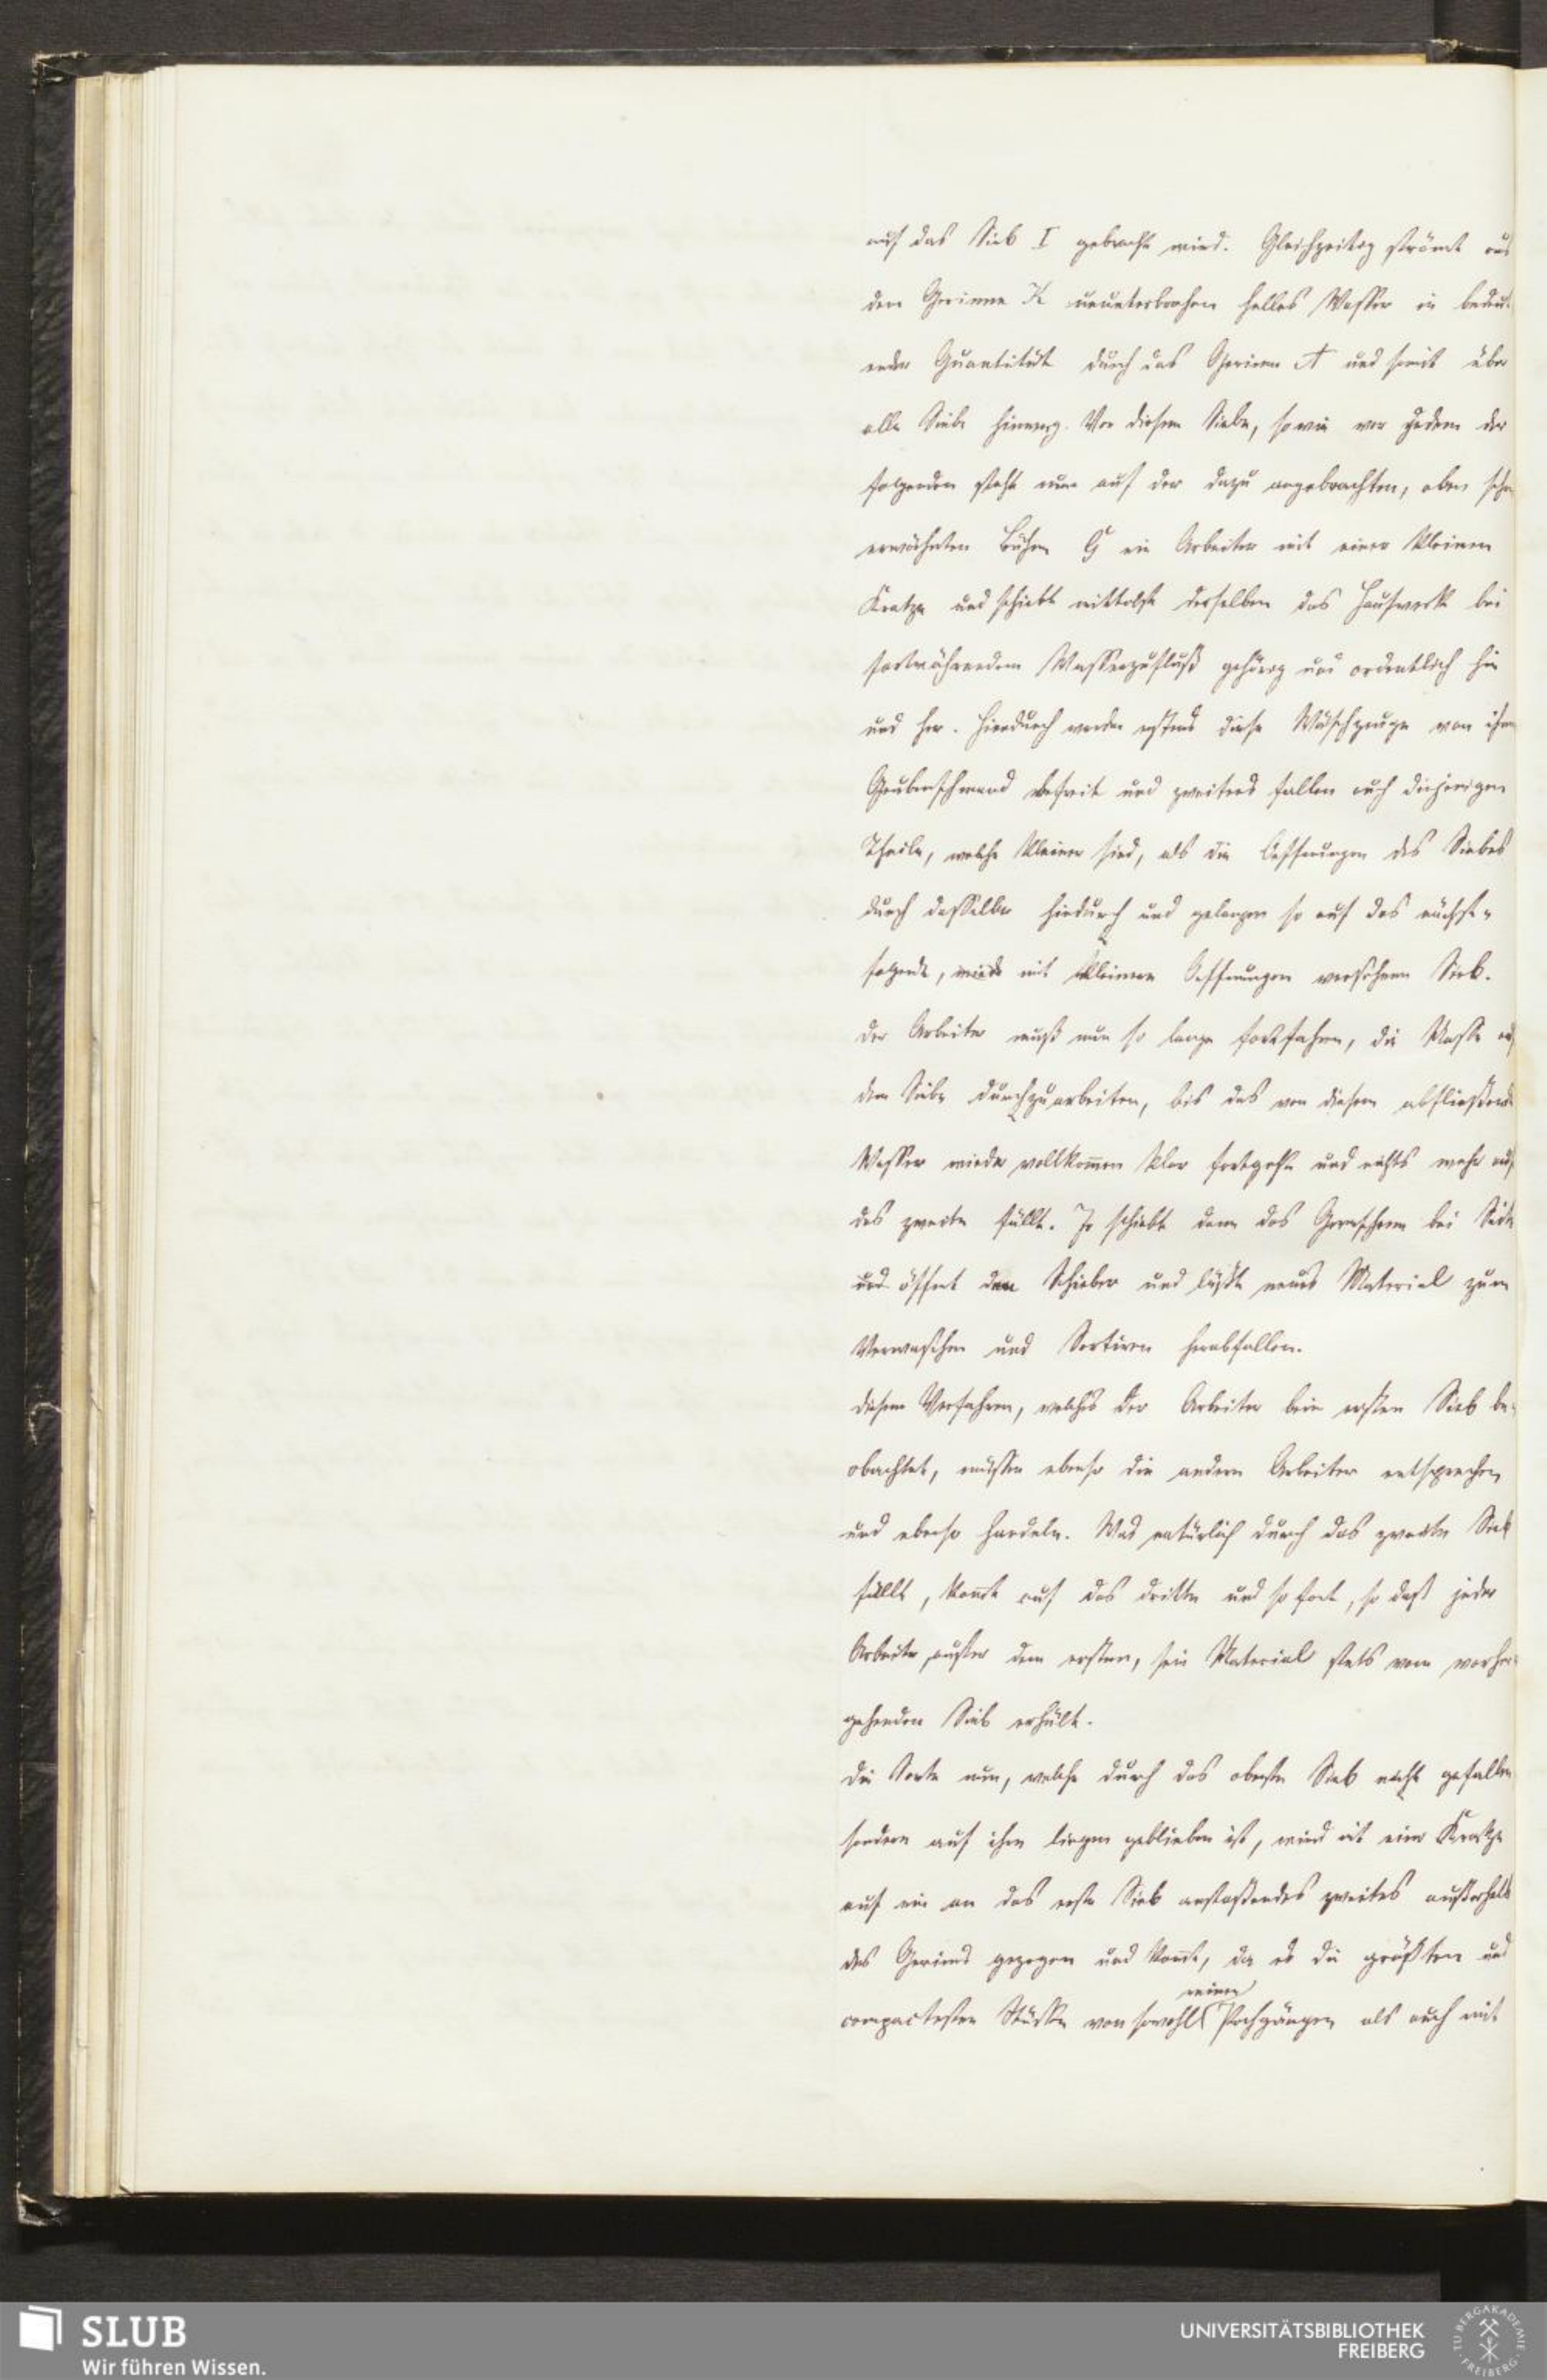 auf das Sieb I gebracht wird. Gleichzeitig strömt aus
dem Gerinne K ununterbrochen helles Wasser in bedeut
ender Quantität durch das Gerinne A und somit über
alle Siebe hinweg. Vor diesem Siebe, sowie vor jedem der
folgenden steht nun auf der dazu angebrachten, oben schon
erwähnten Bühne G ein Arbeiter mit einer kleinen
Kratze und schiebt mittelst derselben das Haufwerk bei
fortwährendem Wasserzufluß gehörig und ordentlich hin
und her. Hierdurch werden erstens diese Waschzeuge von ihrem
Grubenschmand befreit und zweitens fallen auch diejenigen
Theile, welche kleiner sind, als die Oeffnungen des Siebes
durch dasselbe hindurch und gelangen so auf das nächst-
folgende, mit kleineren Oeffnungen versehene Sieb.
Der Arbeiter muß nun so lange fortfahren, die Masse auf
dem Siebe durchzuarbeiten, bis das von diesem abfließende
Wasser wieder vollkommen klar fortgeht und nichts mehr auf
das zweite fällt. Er schiebt dann das bei Seite
und öffnet den Schieber und läßt neues Material zum
Verwaschen und Sortiren herabfallen.
Diesem Verfahren, welches der Arbeiter beim ersten Sieb be-
obachtet, müssen ebenso die andern Arbeiter entsprechen
und ebenso handeln. Was natürlich durch das zweite Sieb
fällt, kommt auf das dritte und so fort, so daß jeder
Arbeiter, außer dem ersten, sein Material stets vom vorher-
gehenden Sieb erhält.
Die Sorte nun, welche durch das oberste Sieb nicht gefallen
sondern auf ihm liegen geblieben ist, wird mit einer Kratze
auf ein an das erste Sieb anstoßendes zweites außerhalb
des Gerinns gezogen und kommt, da es die größten und
reinen
compactesten Stücke von sowohl Pochgängen als auch mit
SLUB
Wir führen Wissen.
UNIVERSITÄTSBIBLIOTHEK
FREIBERG
TU BERGAKADEMIE FREIBERG